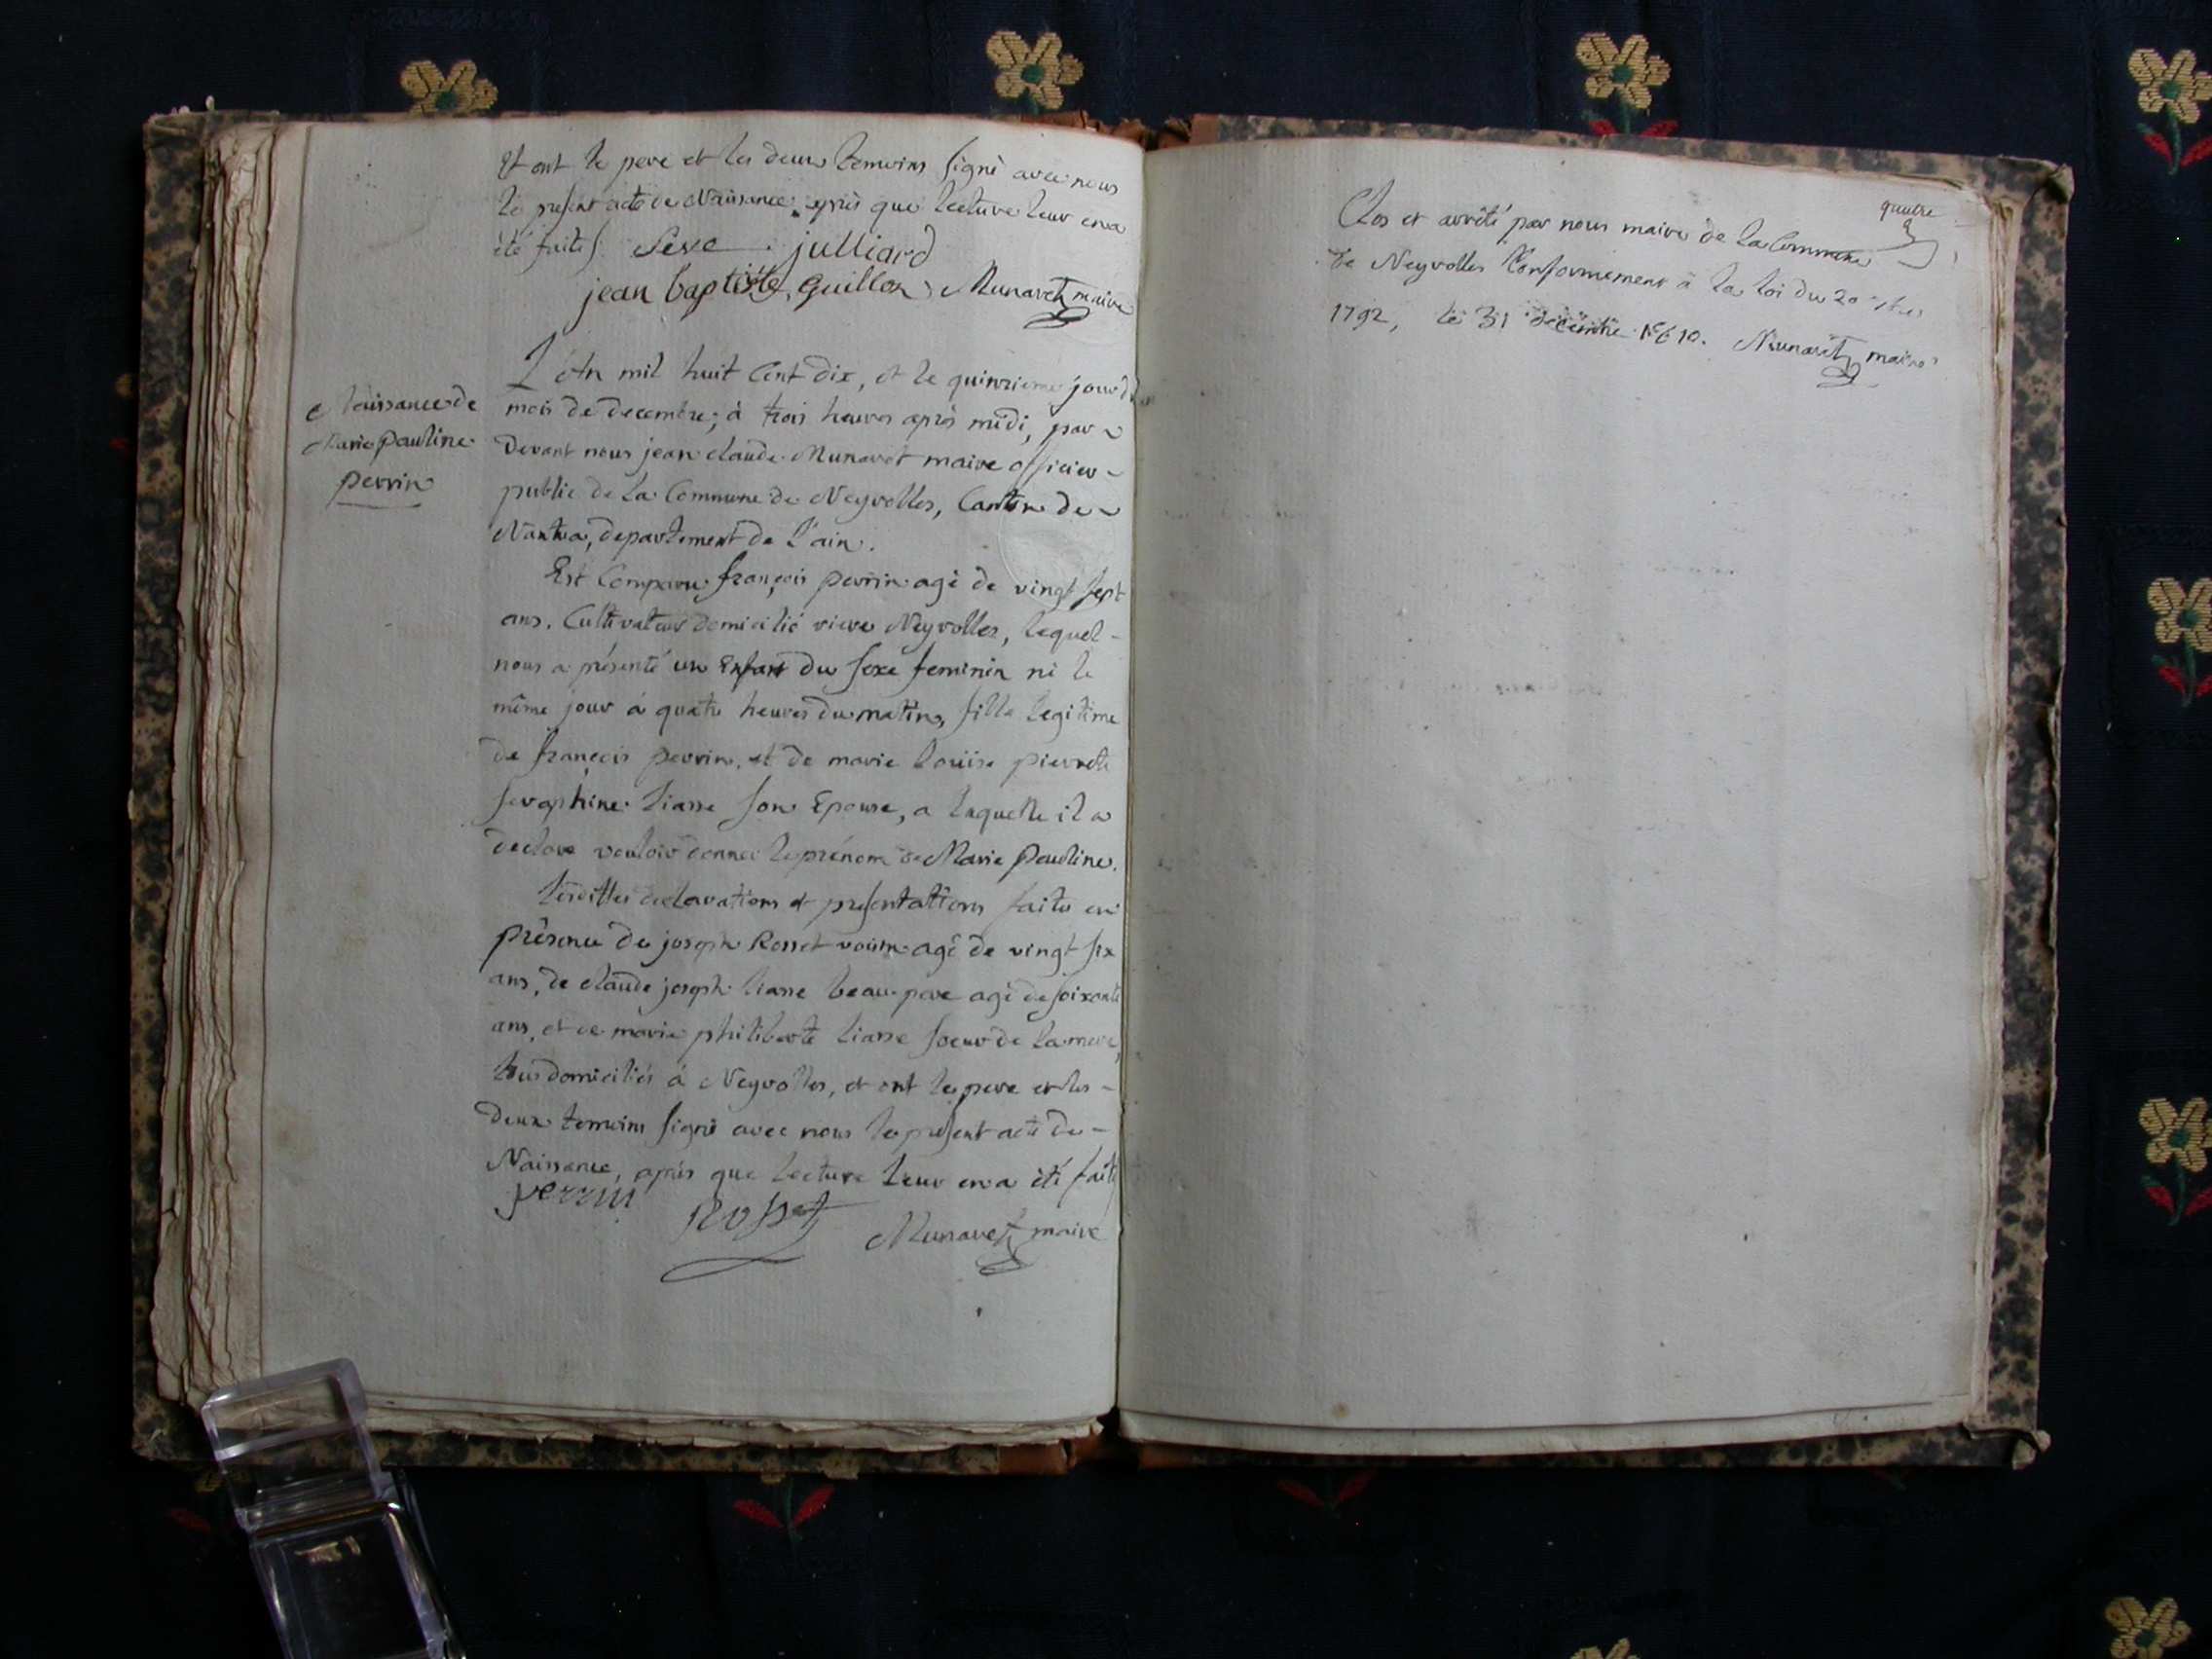 Et ont le pere et les deux temoins signé avec nous
le present acte de Naissance après que lecture leur en a
été faite. Seve julliard
jean baptiste Guillon Munaret maire
Naissance de
Marie pauline
perrin
L'An mil huit Cent dix, et le quinzieme jour du
mois de decembre, à trois heures après midi, par
devant nous jean claude Munaret maire officier
public de la Commune de Neyrolles, Canton de
Nantua, departement de l'ain.
Est Comparu françois perrin agé de vingt sept
ans, Cultivateur domicilié Neyrolles, lequel
nous a présenté un Enfant du sexe feminin né le
même jour à quatre heures du matin, fille legitime
de françois perrin, et de marie loüise pierrette
seraphine liasse son Epouse, a laquelle il a
declare vouloir donner le prénom de Marie Pauline.
Lesdittes declarations et presentations faite en
présence de joseph Rosset voisin agé de vingt six
ans, de claude joseph liasse beau pere agé de soixante
ans, et de marie philiberte liasse soeur de la mere,
tous domiciliés à Neyrolles, et ont le pere et les
deux temoins signé avec nous le present acte de
Naissance, après que lecture leur en a été faite
perrin Rosset Munaret maire
quatre
Clos et arrêté par nous maire de la Commune
de Neyrolles Conformement à la loi du 20
1792, le 31 decembre 1810. Munaret maire